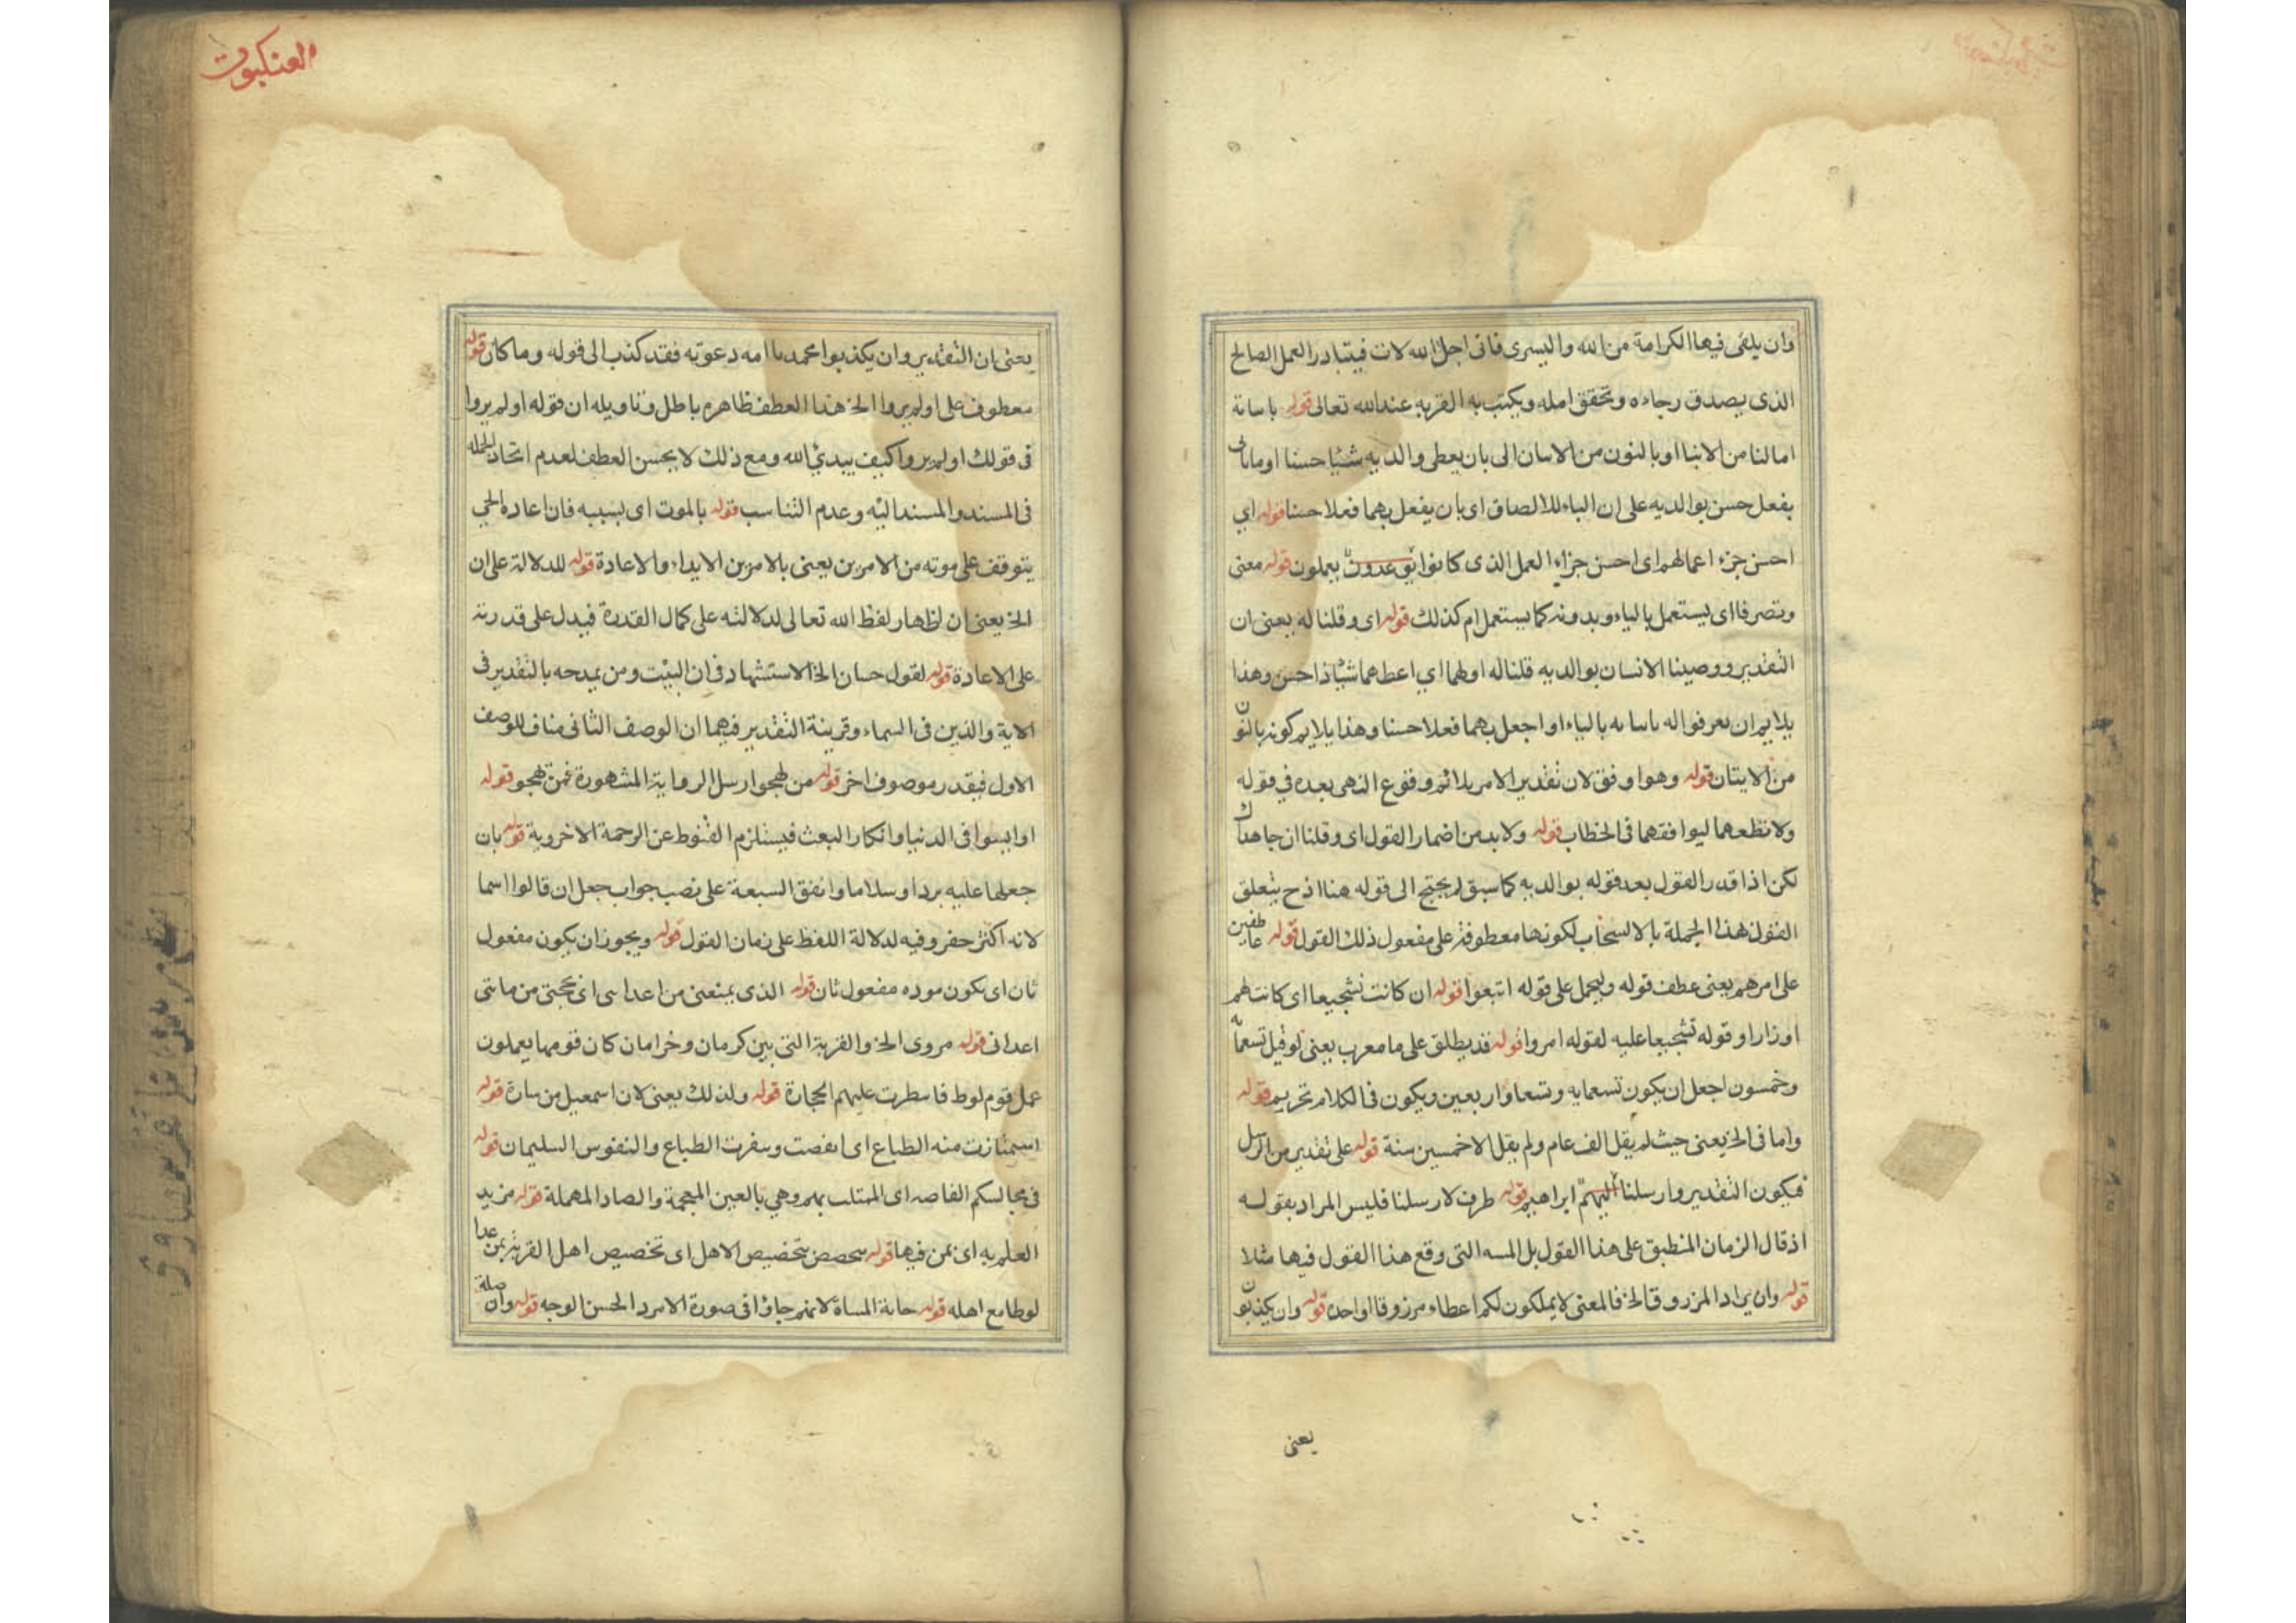 وان يلقى فيها الكرامة من الله واليسرى فان اجل الله لات فيتبادر العمل الصالح
الذى يصدق رجاءه ويحقق امله ويكتب به القربه عند الله تعالى قوله
بان يعطى والديه شيئا حسنا او
بفعل حسن بوالديه على ان الباء للالصاق اى بان يفعل بهما فعلا حسنا قوله اي
احسن جزء اعمالهم اى احسن جزاء العمل الذى كانوا يعملون قوله معنى
وتصرفا اى يستعمل بالياء وبدونه كما يستعمل ام كذلك قوله اى وقلنا له يعنى ان
التقدير ووصينا الانسان بوالديه قلنا له اولهما اي اعطهما شيئا ذا حسن وهذا
يلايم ان بالياء او اجعل بهما فعلا حسنا وهذا يلايم كونه بالنون
من الايتان قوله وهو اوفق لان تقدير الامر يلائم وقوع النهى بعده في قوله
ولا تطعهما ليوافقهما فى الخطاب قوله ولا بد من اضمار القول اى وقلنا ان جاهداك
لكن اذا قدر القول بعد قوله بوالديه كما سبق لم يحتج الى قوله هنا اذ ح يتعلق
القول هذا الجملة بالانسحاب لكونها معطوفة على مفعول ذلك القول قوله عاطفين
على امرهم يعنى عطف قوله ولنحمل على قوله اتبعوا قوله ان كانت تشجيعا اى كانت لهم
اوزارا وقوله تشجيعا عليه لقوله امروا قوله قد يطلق على ما يعنى لو قيل تسعمائة
وخمسون اجعل ان يكون تسعمايه وتسعا واربعين ويكون فى الكلام قوله
واما فى الخ يعنى حيث لم يقل الف عام ولم يقل الا خمسين سنة قوله على تقدير من الرسل
فيكون التقدير وارسلنا ابراهيم قوله ظرف لارسلنا فليس المراد بقوله
اذ قال الزمان المنطبق على هذا القول بل التى وقع هذا القول فيها مثلا
قوله وان يراد المرزوق الخ فالمعنى لا يملكون لكم اعطاء مرزوق واحد قوله وان يكذبون
يعنى
العنكبوت
يعنى ان التقدير وان يكذبوا محمدا دعوته فقد كذب الى قوله وما كان قوله
معطوف على اولم يروا الخ هذا العطف ظاهره باطل وتاويله ان قوله اولم يروا
فى قولك اولم يروا كيف يبدئ الله ومع ذلك لا يحسن العطف لعدم اتحاد الجملة
فى المسند والمسند اليه وعدم التناسب قوله بالموت اى بسببه فان اعاده الحي
يتوقف على موته من الامرين يعنى بالامرين الابداء والاعادة قوله للدلالة على ان
الخ يعنى ان اظهار لفظ الله تعالى لدلالته على كمال القدرة فيدل على قدرته
على الاعادة قوله لقول حسان الخ الاستشهاد فى ان البيت ومن يمدحه بالتقدير فى
الاية والذين فى السماء وقرينة التقدير فيهما ان الوصف الثانى مناف للوصف
الاول فيقدر موصوف اخر قوله من الرواية المشهورة فمن يهجو قوله
او ايسوا فى الدنيا وانكار البعث فيستلزم القنوط عن الرحمة الاخروية قوله بان
جعلها عليه بردا وسلاما واتفق السبعة على نصب جواب جعل ان قالوا اسما
لانه اكثر وفيه لدلالة اللفظ على زمان القول قوله ويجوز ان يكون مفعول
ثان اى يكون موده مفعول ثان قوله الذى يمنعنى من
قوله مروى الخ والقرية التى بين كرمان كان قومها يعملون
عمل قوم لوط فامطرت عليهم الحجارة قوله ولذلك يعنى لان اسمعيل من سارة قوله
اشمئازت منه الطباع اى ونفرت الطباع والنفوس السليمان قوله
فى مجالسكم اى بهم وهي بالعين المعجمة والصاد المهملة قوله مزيد
العلم به اى بمن فيها قوله بتخصيص الاهل اى تخصيص اهل القرية بمن عدا
لوطا مع اهله قوله لانهم جاؤا فى صورة الامرد الحسن الوجه قوله وان صلة